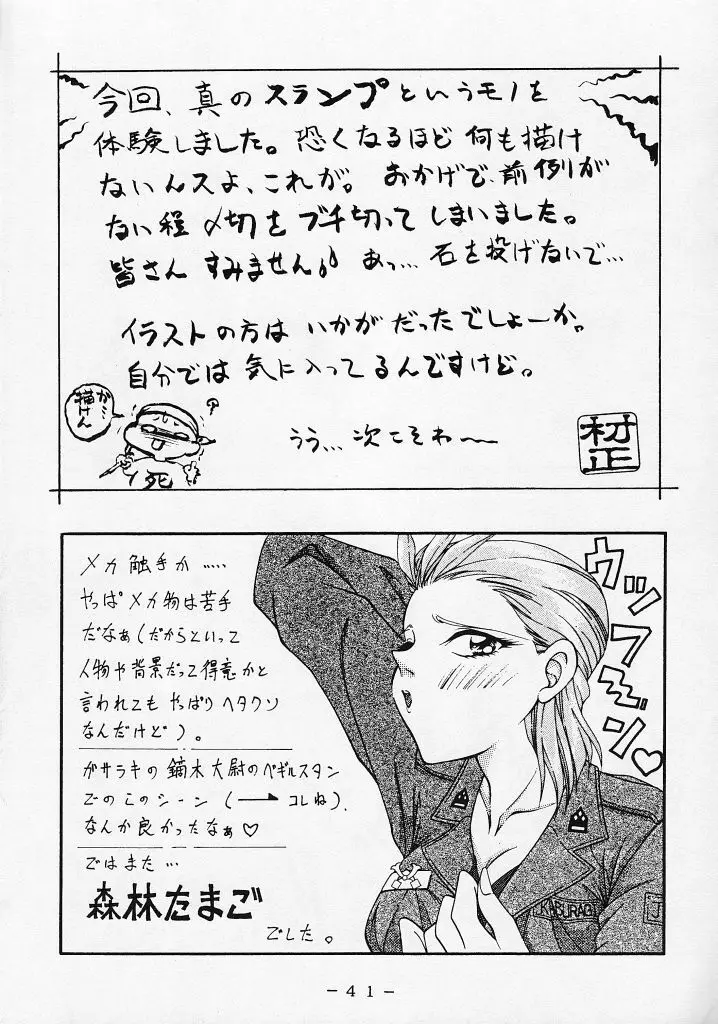 今回、真のスランプというモノを
体験しました。恐くなるほど何も描け
ないんスよ、これが。おかげで、前例が
ない程〆切をブチ切ってしまいました。
皆さんすみません♪ あっ…石を投げないで…
イラストの方はいかがだったでしょーか。
自分では気に入ってるんですけど。
うう…次こそわ〜
が…
描けん
死
村正
メカ触手か……
やっぱメカ物は苦手
だなぁ(だからといって
人物や背景だって得意かと
言われてもやっぱりヘタクソ
なんだけど)。
ガサラキの鏑木大尉のベギルスタン
でのこのシーン(→コレね)、
なんか良かったなぁ♡
ではまた…
森林たまご
でした。
ウッフーン♡
KABURAGI
J
-41-